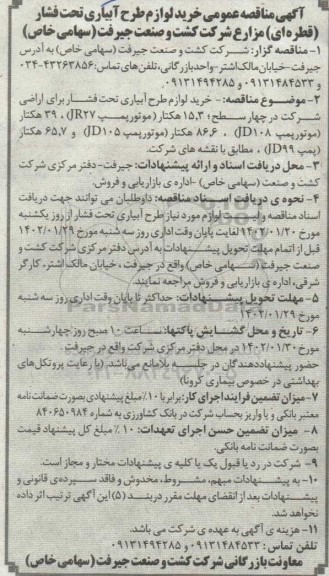 آگهی مناقصه عمومی خرید لوازم طرح آبیاری تحت فشار
(قطره ای) مزارع شرکت کشت و صنعت جیرفت (سهامی خاص)
۱- مناقصه گزار: شرکت کشت و صنعت جیرفت (سهامی خاص) به آدرس
جیرفت-خیابان مالک اشتر-واحد بازرگانی، تلفن های تماس: ۴۳۲۶۳۸۵۶-۰۳۴
و ۰۹۱۳۱۴۸۴۵۳۳ و ۰۹۱۳۱۴۹۴۲۸۵
۲- موضوع مناقصه: - خرید لوازم طرح آبیاری تحت فشار برای اراضی
شرکت در چهار سطح؛ ۱۵،۳۰ هکتار (موتورپمپ JR۲۷)، ۳۹ هکتار
(موتورپمپ JD۱۰۸)، ۸۶،۶ هکتار (موتورپمپ JD۱۰۵) و ۶۵،۷ هکتار
(پمپ JD۹۹)، مطابق با نقشه های شرکت.
۳- محل دریافت اسناد و ارائه پیشنهادات: جیرفت- دفتر مرکزی شرکت
کشت و صنعت (سهامی خاص) -اداره ی بازاریابی و فروش.
۴- نحوه ی دریافت اسناد مناقصه: داوطلبان می توانند جهت دریافت
اسناد مناقصه و لیست لوازم مورد نیاز طرح آبیاری تحت فشار از روز یکشنبه
مورخ ۱۴۰۲/۰۱/۲۰ لغایت پایان وقت اداری روز سه شنبه مورخ ۱۴۰۲/۰۱/۲۹
قبل از اتمام مهلت تحویل پیشنهادات به آدرس دفتر مرکزی شرکت کشت و
صنعت جیرفت (سهامی خاص) واقع در جیرفت، خیابان مالک اشتر، کارگر
شرقی، اداره ی بازاریابی و فروش مراجعه نمایند.
۵- مهلت تحویل پیشنهادات: حداکثر تا پایان وقت اداری روز سه شنبه
مورخ ۱۴۰۲/۰۱/۲۹
۶- تاریخ و محل گشایش پاکتها: ساعت ۱۰ صبح روز چهارشنبه
مورخ ۱۴۰۲/۰۱/۳۰ در محل دفتر مرکزی شرکت واقع در جیرفت
حضور پیشنهاددهندگان در جلسه بلامانع می باشد. (با رعایت پروتکل های
بهداشتی در خصوص بیماری کرونا)
۷- میزان تضمین فرایند اجرای کار: برابر با ۱۰٪ مبلغ پیشنهادی بصورت ضمانت نامه
معتبر بانکی و یا واریز بحساب شرکت در بانک کشاورزی به شماره ۸۴۰۶۵۰۹۸۴
۸- میزان تضمین حسن اجرای تعهدات: ۱۰٪ مبلغ کل پیشنهاد قیمت
بصورت ضمانت نامه بانکی.
۹- شرکت در رد یا قبول یک یا کلیه ی پیشنهادات مختار و مجاز است.
۱۰- به پیشنهادات مبهم، مشروط، مخدوش و فاقد سپرده ی قانونی و
پیشنهادات بعد از انقضای مهلت مقرر در بند (۵) این آگهی ترتیب اثر داده
نخواهد شد.
۱۱- هزینه ی آگهی به عهده ی شرکت می باشد.
تلفن تماس: ۰۹۱۳۱۴۸۴۵۳۳ و ۰۹۱۳۱۴۹۴۲۸۵
معاونت بازرگانی شرکت کشت و صنعت جیرفت (سهامی خاص)